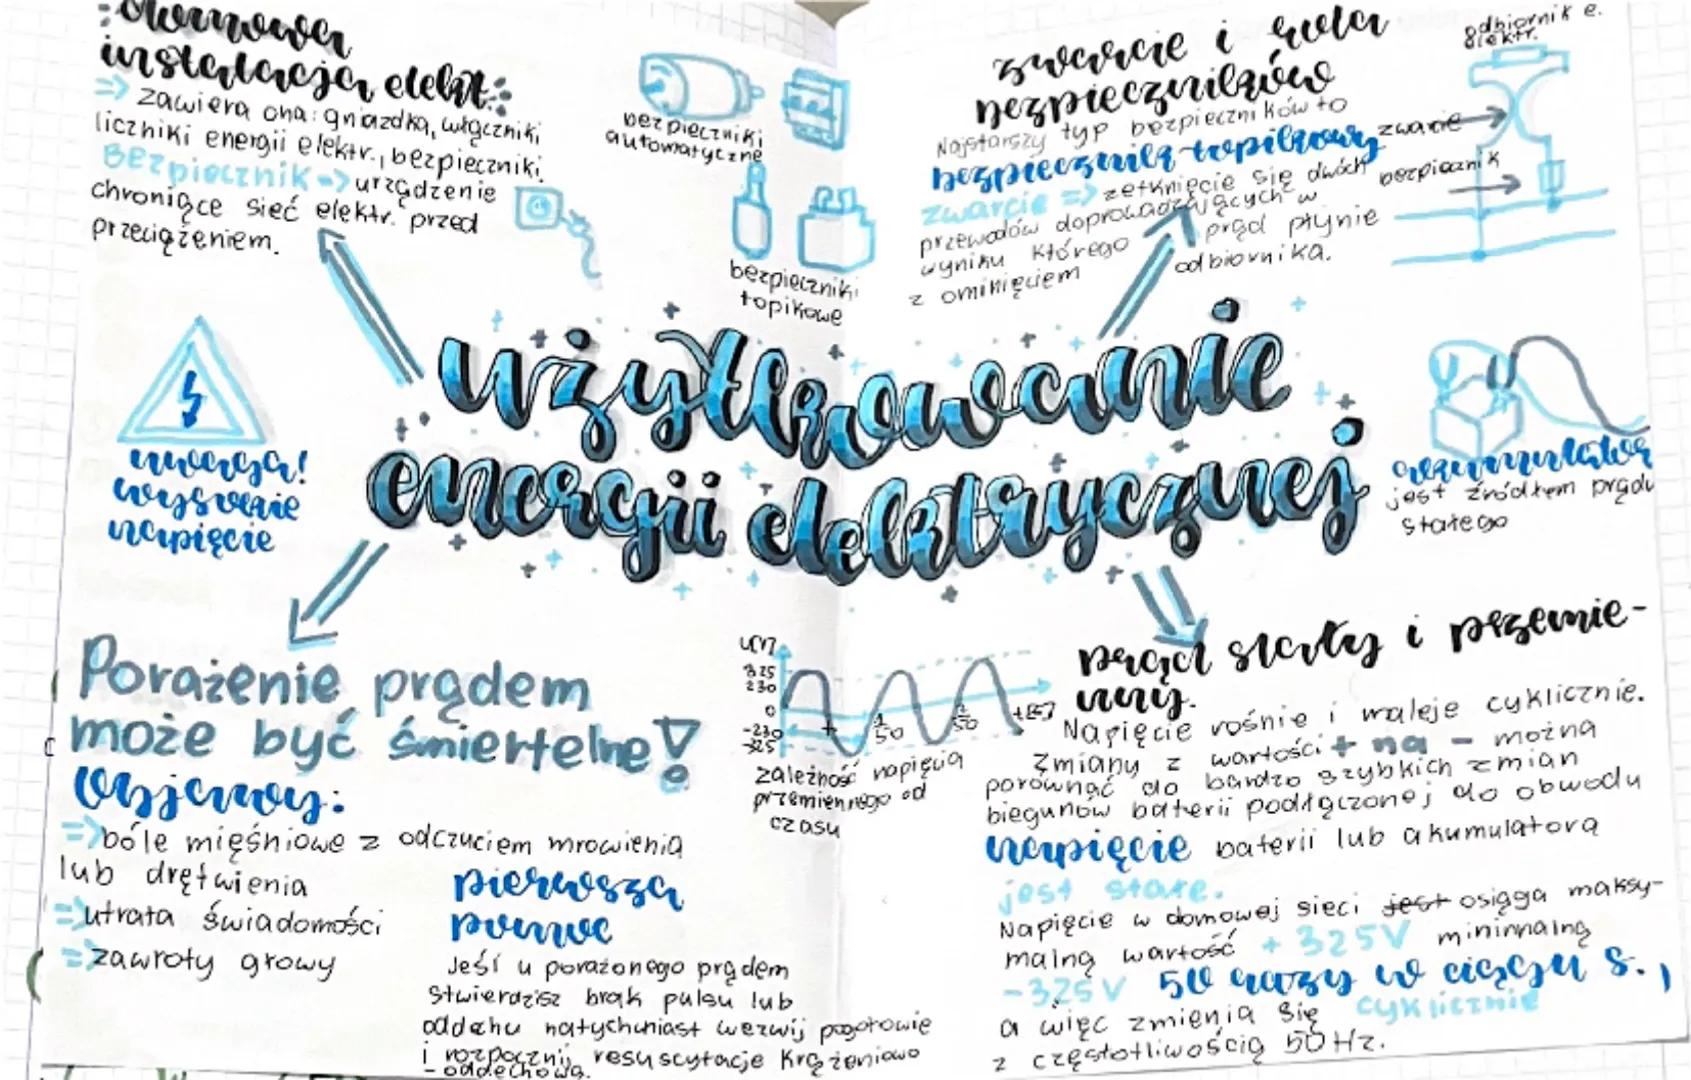 domowa
instalacja elekt.
=> zawiera ona: gniazdka, włączniki
liczniki energii elektr., bezpieczniki.
BEzpiecznik => urządzenie
chroniące sieć elektr. przed
przeciążeniem.
bezpieczniki
automatyczne
bezpieczniki
topikowe
zwarcie i rola
bezpieczników
Najstarszy typ bezpieczników to
bezpieczniki topikowy
zwarcie => zetknięcie się dwóch
przewodów doprowadzających w
wyniku którego prąd płynie
z ominięciem odbiornika.
odbiornik e.
elektr.
zwarcie
bezpiecznik
użytkowanie
energii elektrycznej
uwaga!
wysokie
napięcie
akumulator
jest źródłem prądu
stałego
Porażenie prądem
może być śmiertelne!
Objawy:
=> bóle mięśniowe z odczuciem mrowienia
lub drętwienia
=> utrata świadomości
=> zawroty growy
pierwsza
pomoc
Jeśi u porażonego prądem
stwierdzisz brak pulsu lub
oddechu natychmiast wezwij pogotowie
i rozpocznij resuscytacje krążeniowo
- oddechową.
U[V]
325
230
0
-230
-325
1/50
2/50
t[s]
zależność napięcia
przemiennego od
czasu
prąd stały i przemie-
nny.
Napięcie rośnie i maleje cyklicznie.
Zmiany z wartości + na - można
porównać do bardzo szybkich zmian
biegunów baterii podłączonej do obwodu
napięcie baterii lub akumulatora
jest stałe.
Napięcie w domowej sieci jest osiąga maksy-
malną wartość + 325V minimalną
-325V 50 razy w ciągu s.,
a więc zmienia się cyklicznie
z częstotliwością 50Hz.